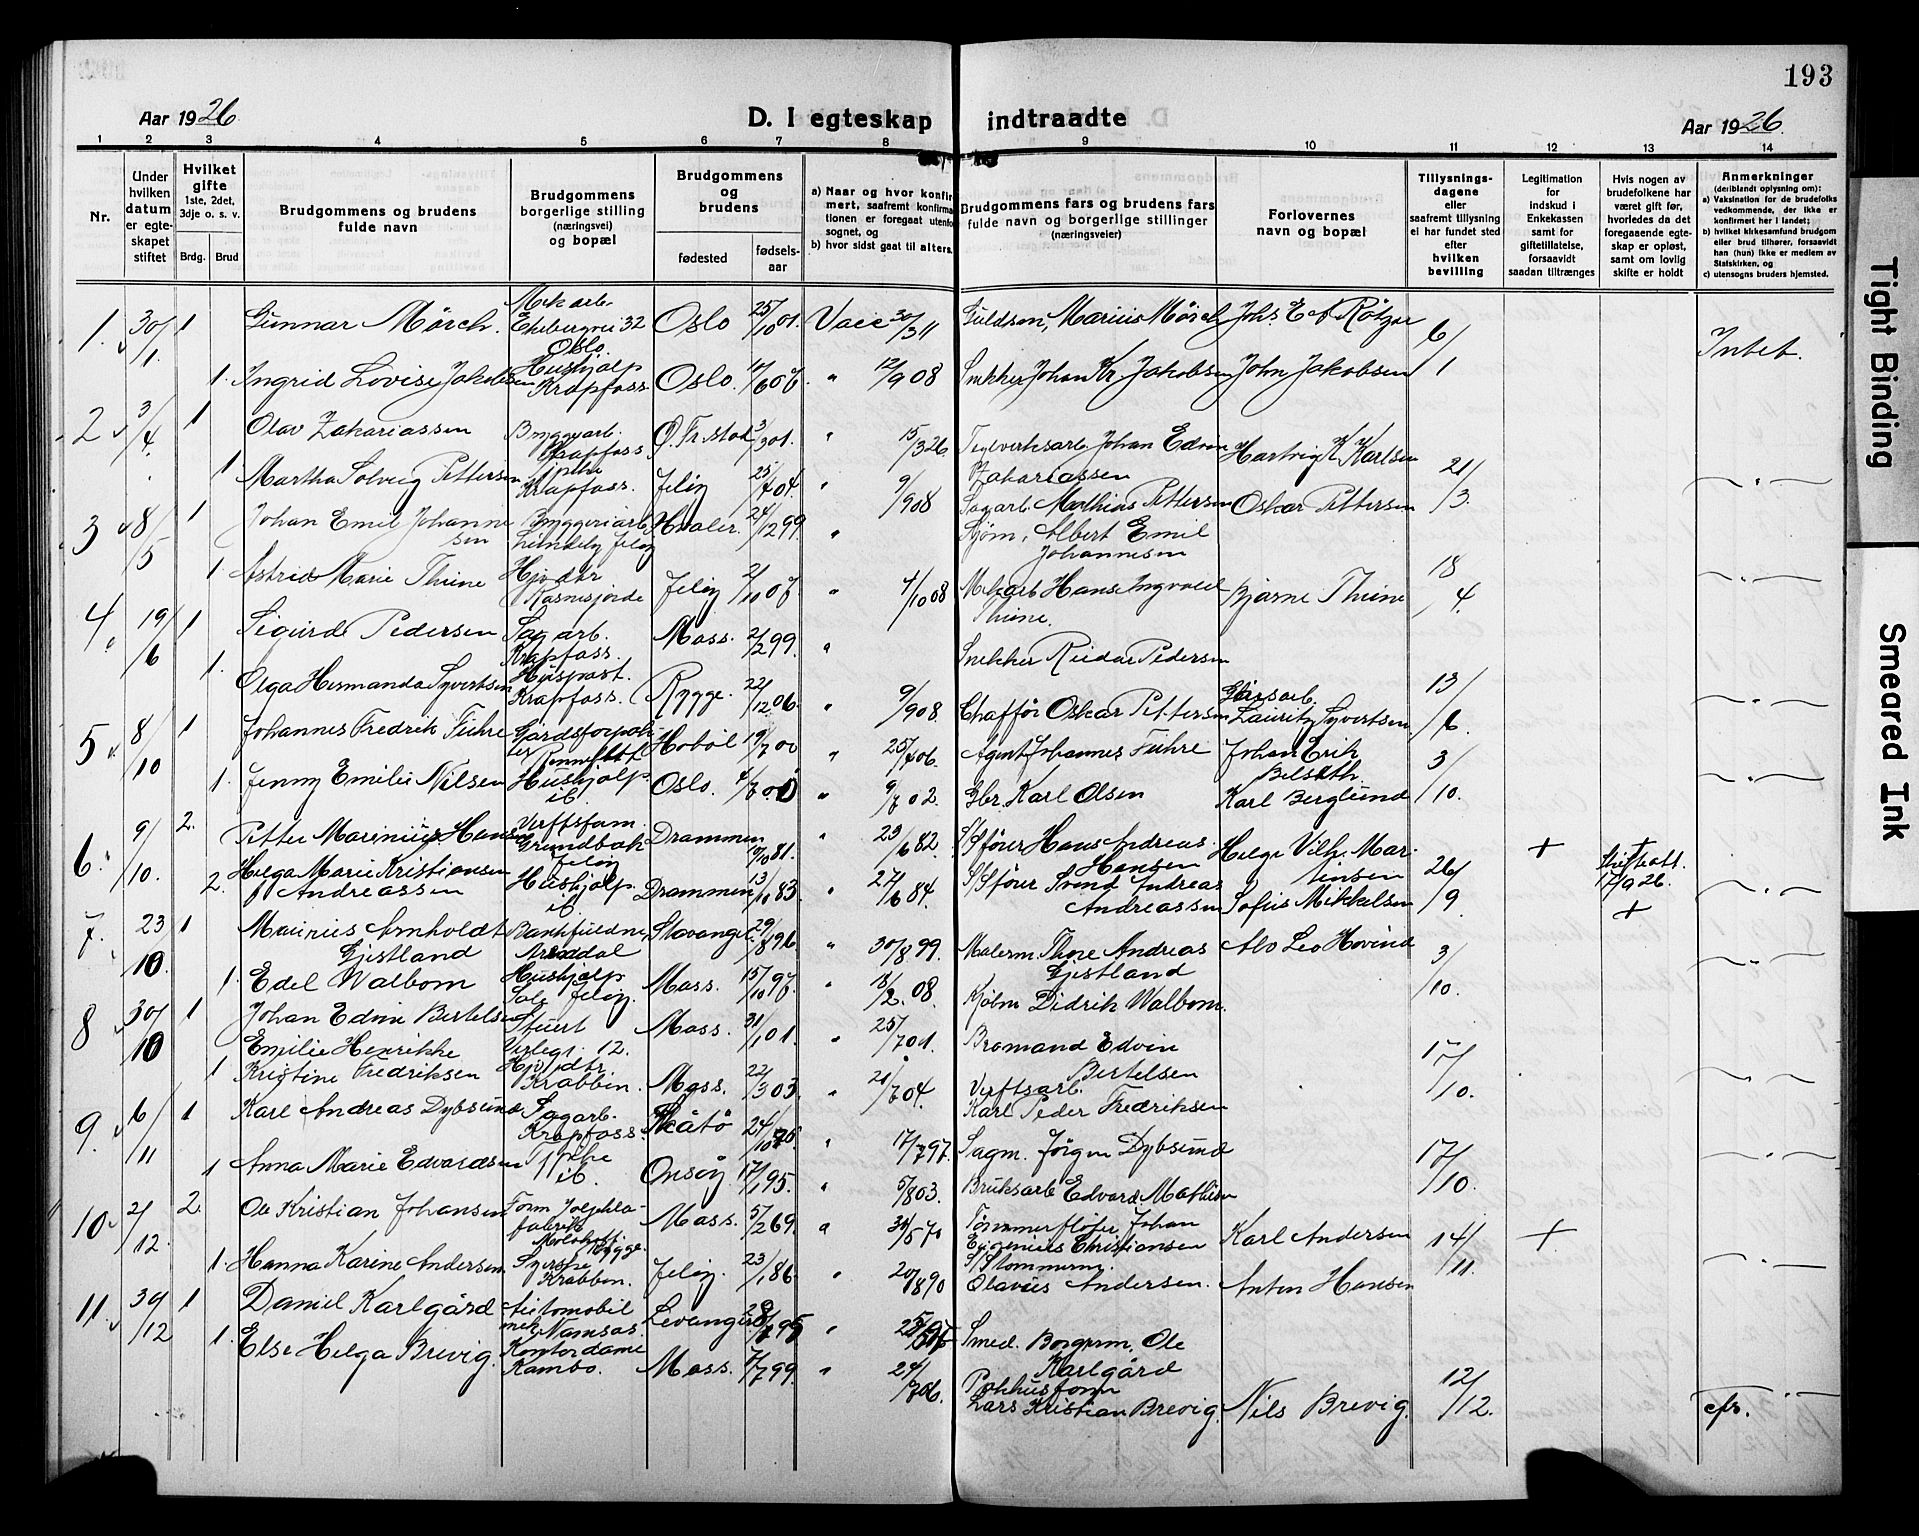 193
Aar 1926
D. I egteskap indtraadte
Aar 1926.
1 2 3 4 5 6 7 8 9 10 11 12 13 14
Nr.
Under hvilken datum er egteskapet stiftet
Hvilket gifte 1ste, 2det, 3dje o. s. v.
Brdg. Brud
Brudgommens og brudens fulde navn
Brudgommens borgerlige stilling (næringsvei) og bopæl
Brudgommens og brudens
fødested
fødselsaar
a) Naar og hvor konfirmert, saafremt konfirmationen er foregaat utenfor sognet, og
b) hvor sidst gaat til alters.
Brudgommens fars og brudens fars fulde navn og borgerlige stillinger (næringsveier)
Forlovernes navn og bopæl
Tillysningsdagene eller saafremt tillysning ei har fundet sted efter hvilken bevilling
Legitimation for indskud i Enkekassen samt for giftetillatelse, forsaavidt saadan tiltrænges
Hvis nogen av brudefolkene har været gift før, hvorledes da det foregaaende egteskap er opløst, samt om lovlig skifte er holdt
Anmerkninger (deriblandt oplysning om):
a) Vaksination for de brudefolks vedkommende, der ikke er konfirmert her i landet;
b) hvilket kirkesamfund brudgom eller brud tilhører, forsaavidt han (hun) ikke er medlem av Statskirken, og
c) utensogns bruders hjemsted.
1. 30/1. 1 Gunnar Mörch. Mek arb. Ekebergvei 32 Oslo. Oslo 25/10 01. Vacc 30/3 11 Guldsm, Marius Mörch Johs. E. Rötzar 6/1 Intet.
1. Ingrid Lovise Jakobsen Hushjælp Krapfoss Oslo. 17/6 07. " 12/9 08 Snekker Johan Kr. Jakobsen John Jakobsen
2 3/4. 1 Olav Zakariassen Bryggarb. Krapfoss. Ø. Fr.stad 3/3 01. " 15/3 26. Teglverksarb Johan Edvin Zakariassen Hartvig K. Karlsen 21/3.
1. Martha Solveig Pettersen Krapfoss. Jelöy 25/7 04. " 9/9 08 Sagarb. Mathias Pettersen Oskar Pettersen
3 8/5 1 Johan Emil Johannesen Bryggeriarb. Lundeby Jelöy Hvaler. 24/12 99. " Sjöm, Albert Emil Johannesen
1. Astrid Marie Thune Hjv.dtr Kasnesjorde Jelöy 21/10 07 " 4/10 08 Mekarb Hans Ingvald Thune. Bjarne Thune 18/4.
4. 19/6 1 Sigurd Pedersen Sagarb. Krapfoss. Moss. 2/2 99. " Snekker Reidar Pedersen
1. Olga Hermanda Syvertsen Huspost. Krapfoss. Rygge. 22/12 06. " 9/9 08. Chafför Oskar Pettersen Lauritz Syvertsen 13/6.
5 8/10 1 Johannes Fredrik Fuhre Gårdsforpakter Hoböl 19/7 00 " 25/7 06. Agent Johannes Fuhre Johan Erik Belseth 3/10.
1. Jenny Emilie Nilsen Hushjælp. ib. Oslo. 4/7 00 " 9/7 02. Gbr. Karl Olsen Karl Berglund
6. 9/10. 2. Petter Marinius Hansen Verftsform. Grundbak Jelöy Drammen 10/10 81. " 23/6 82 S/Sförer Hans Andreas Hansen Helge Vilh. Marinsen 26/9. + 17/9 26.
2. Helga Marie Kristiansen f. Andreassen Hushjælp. ib. Drammen 13/10 83 " 27/6 84. S/Sförer Svend Andreas Andreassen Sofus Mikkelsen +
7. 23/10. 1 Maurius Arnholdt Gjestland Bankfuldm. Arendal Stavanger. 29/8 96 " 30/8 99. Malerm. Thore Andreas Gjestland Alv Leo Hovind 3/10.
1. Edel Walbom Hushjælp Jelöy. Moss. 15/10 97. " 18/2. 08. Kjøbm Didrik Walbom.
8 30/10 1 Johan Edvin Bertelsen Stuert Verlegt. 12. Moss. 31/1 01. " 25/7 01. Bromand Edvin Bertelsen 17/10.
1 Emilie Henrikke Kristine Fredriksen Hjv.dtr. Krabben. Moss. 22/3 03 " 21/7 04. Verftsarb. Karl Peder Fredriksen
9. 6/11 1 Karl Andreas Dybsund Sagarb. Krapfoss. Skåtö 24/10 75 " 17/7 97. Sagm. Jörgen Dybsund 17/10.
1 Anna Marie Edvardsen ib. Onsöy 17/1 95. " 5/8 03. Bruksarb Edvard Mathisen
10. 2/12. 2. Ole Kristian Johansen Form. Rygge. Moss. 5/2 69. " Tömmerflöter Johan Eugenius Christiansen Karl Andersen 14/11. +
1. Hanna Karine Andersen Syerske Krabben. Jelöy. 23/1 86. " 20/8 90 S/Stömmerm. Olavus Andersen. Anton Hansen
11. 30/12 1 Daniel Karlgård Automobil mek. Namsos. Levanger " Smed. Borgerm. Ole Karlgård
1. Else Helga Brevig. Kontordame Kambo. Moss. 7/7 99. " 24/7 06. Pakhusform Lars Kristian Brevig. Nils Brevig. 12/12. cfr.
Tight Binding
Smeared Ink